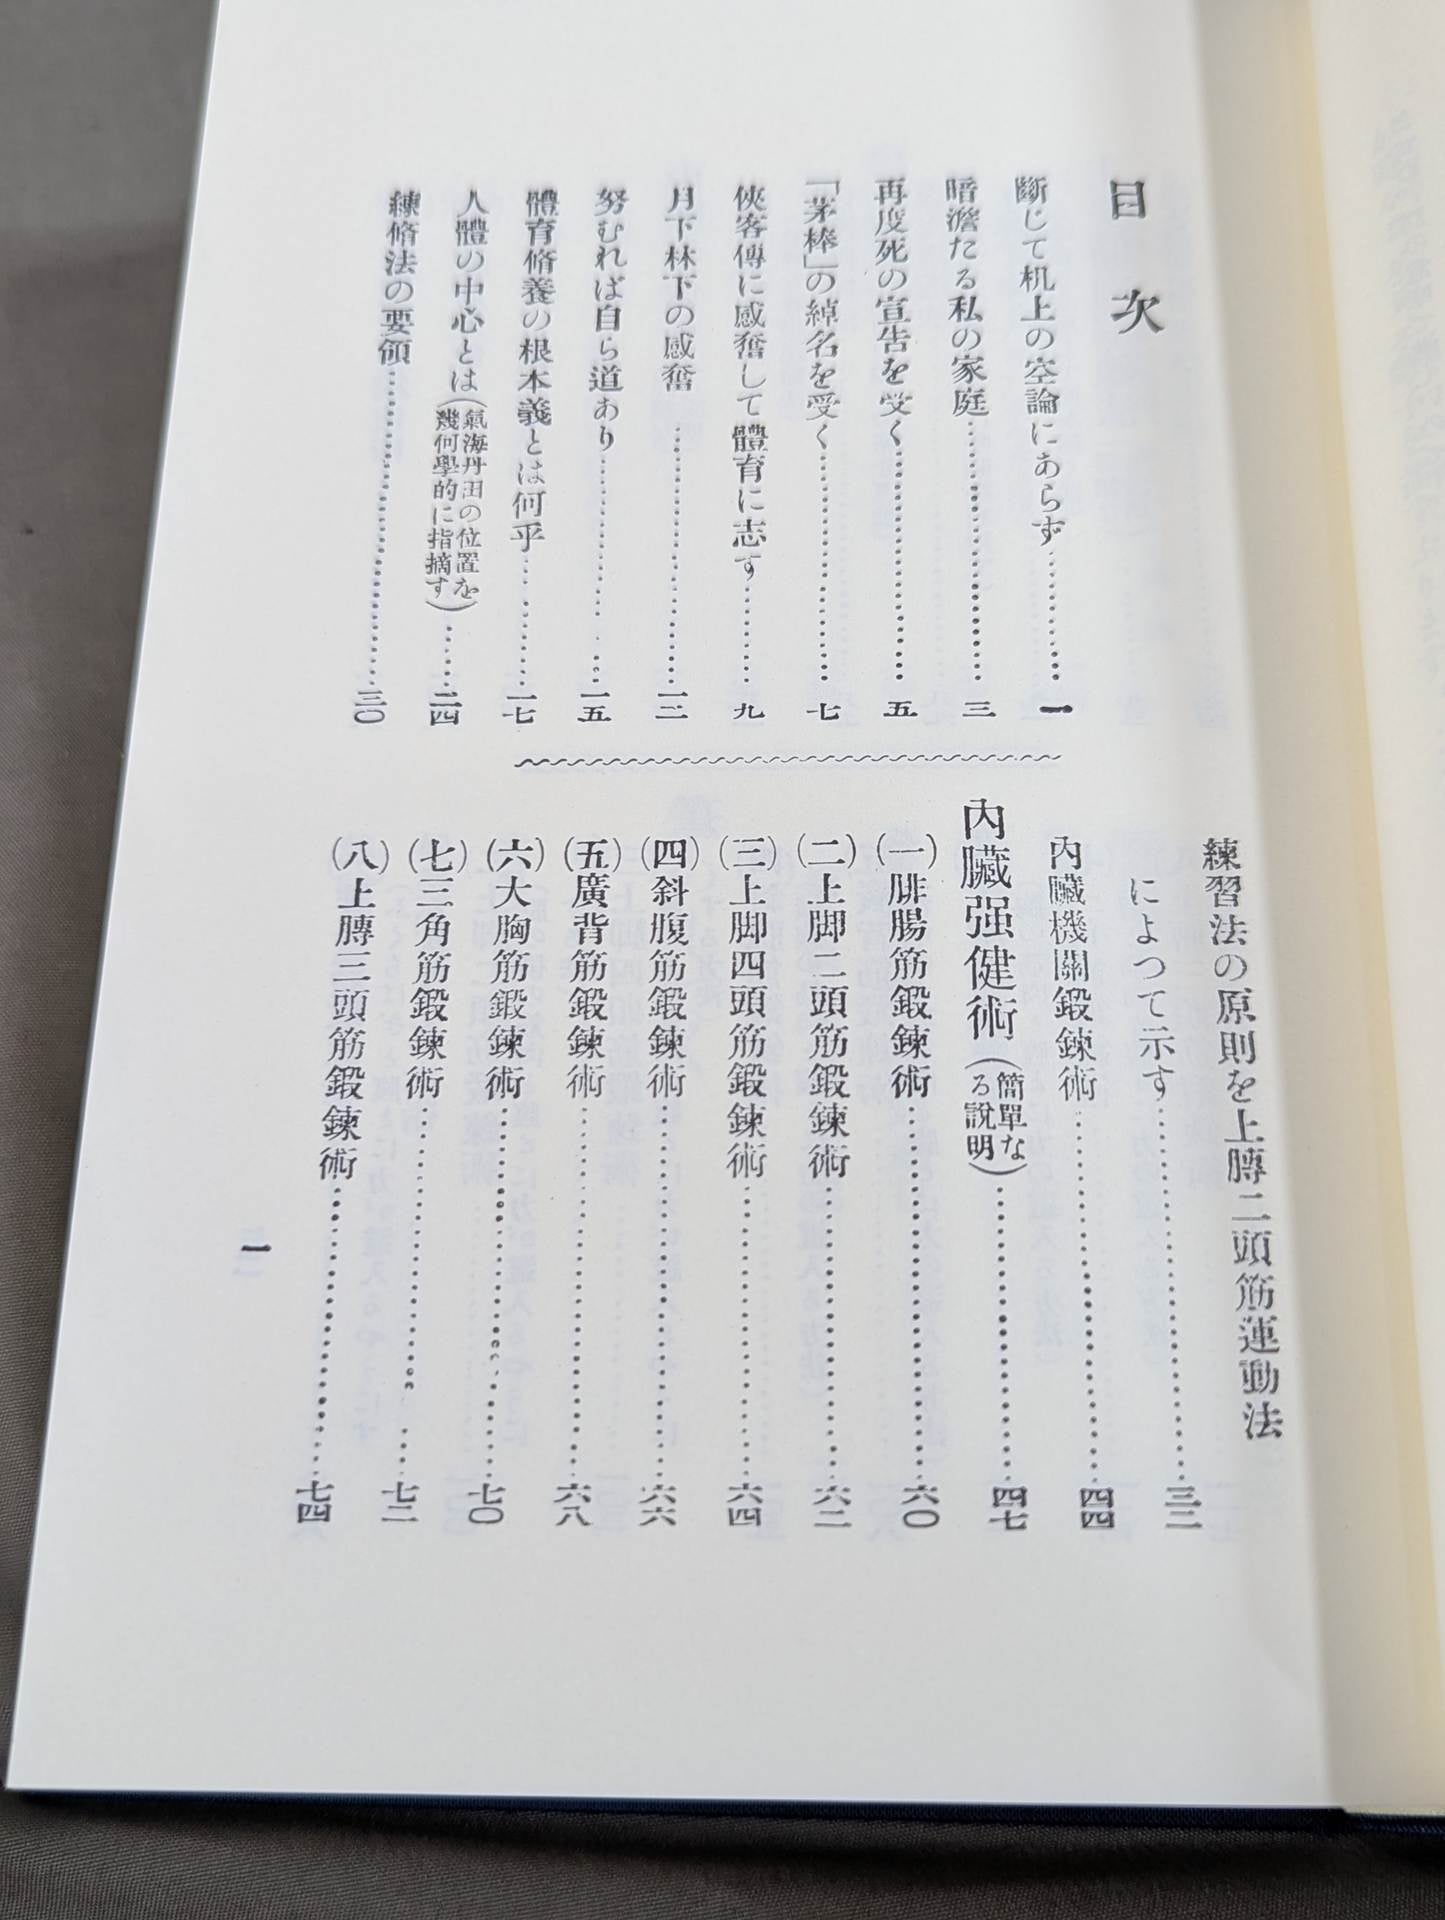 目次
斷じて机上の空論にあらず…………一
暗澹たる私の家庭…………三
再度死の宣告を受く…………五
「茅棒」の綽名を受く…………七
俠客傳に感奮して體育に志す…………九
月下林下の感奮…………一二
努むれば自ら道あり…………一五
體育修養の根本義とは何乎…………一七
人體の中心とは(氣海丹田の位置を幾何學的に指摘す)……二四
練脩法の要領…………三〇
練習法の原則を上膊二頭筋運動法
によつて示す…………三二
內臟機關鍛鍊術…………四四
內臟强健術(簡單なる說明)…………四七
(一)腓腸筋鍛鍊術…………六〇
(二)上脚二頭筋鍛鍊術…………六二
(三)上脚四頭筋鍛鍊術…………六四
(四)斜腹筋鍛鍊術…………六六
(五)廣背筋鍛鍊術…………六八
(六)大胸筋鍛鍊術…………七〇
(七)三角筋鍛鍊術…………七二
(八)上膊三頭筋鍛鍊術…………七四
一